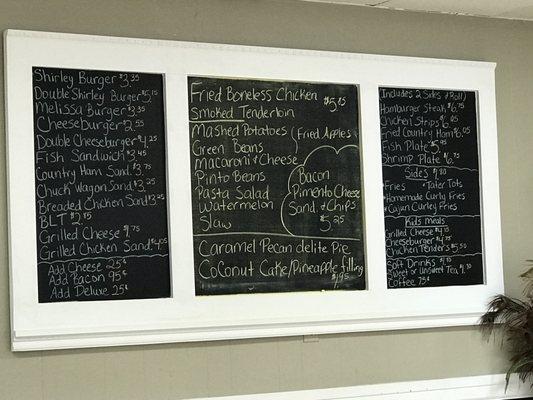 Shirley Burger $3.35
Double Shirley Burger $5.15
Melissa Burger $3.35
Cheeseburger 2.55
Double Cheeseburger $4.25
Fish Sandwich $3.45
Country Ham Sand. $3.75
Chuck Wagon Sand. $3.25
Breaded Chicken Sand $3.25
BLT $2.85
Grilled Cheese $1.75
Grilled Chicken Sand $4.05
Add Cheese 25¢
Add Bacon 95¢
Add Deluxe 25¢
Fried Boneless Chicken
Smoked Tenderloin $5.85
Mashed Potatoes
Green Beans
Macaroni + Cheese
Pinto Beans
Pasta Salad
Watermelon
Slaw
Fried Apples
Bacon
Pimento Cheese
Sand. + Chips
$5.25
Caramel Pecan delite Pie
Coconut Cake/Pineapple filling
$1.95
Includes 2 Sides + Roll
Hamburger Steak $6.75
Chicken Strips $6.05
Fried Country Ham $6.05
Fish Plate $5.95
Shrimp Plate $6.75
Sides $1.80
*Fries *Tater Tots
*Homemade Curly Fries
*Cajun Curley Fries
Kids meals
Grilled Cheese $4.15
Cheeseburger $4.75
Chicken Tenders $5.50
Soft Drinks
Sweet or Unsweet Tea $1.30
Coffee 75¢